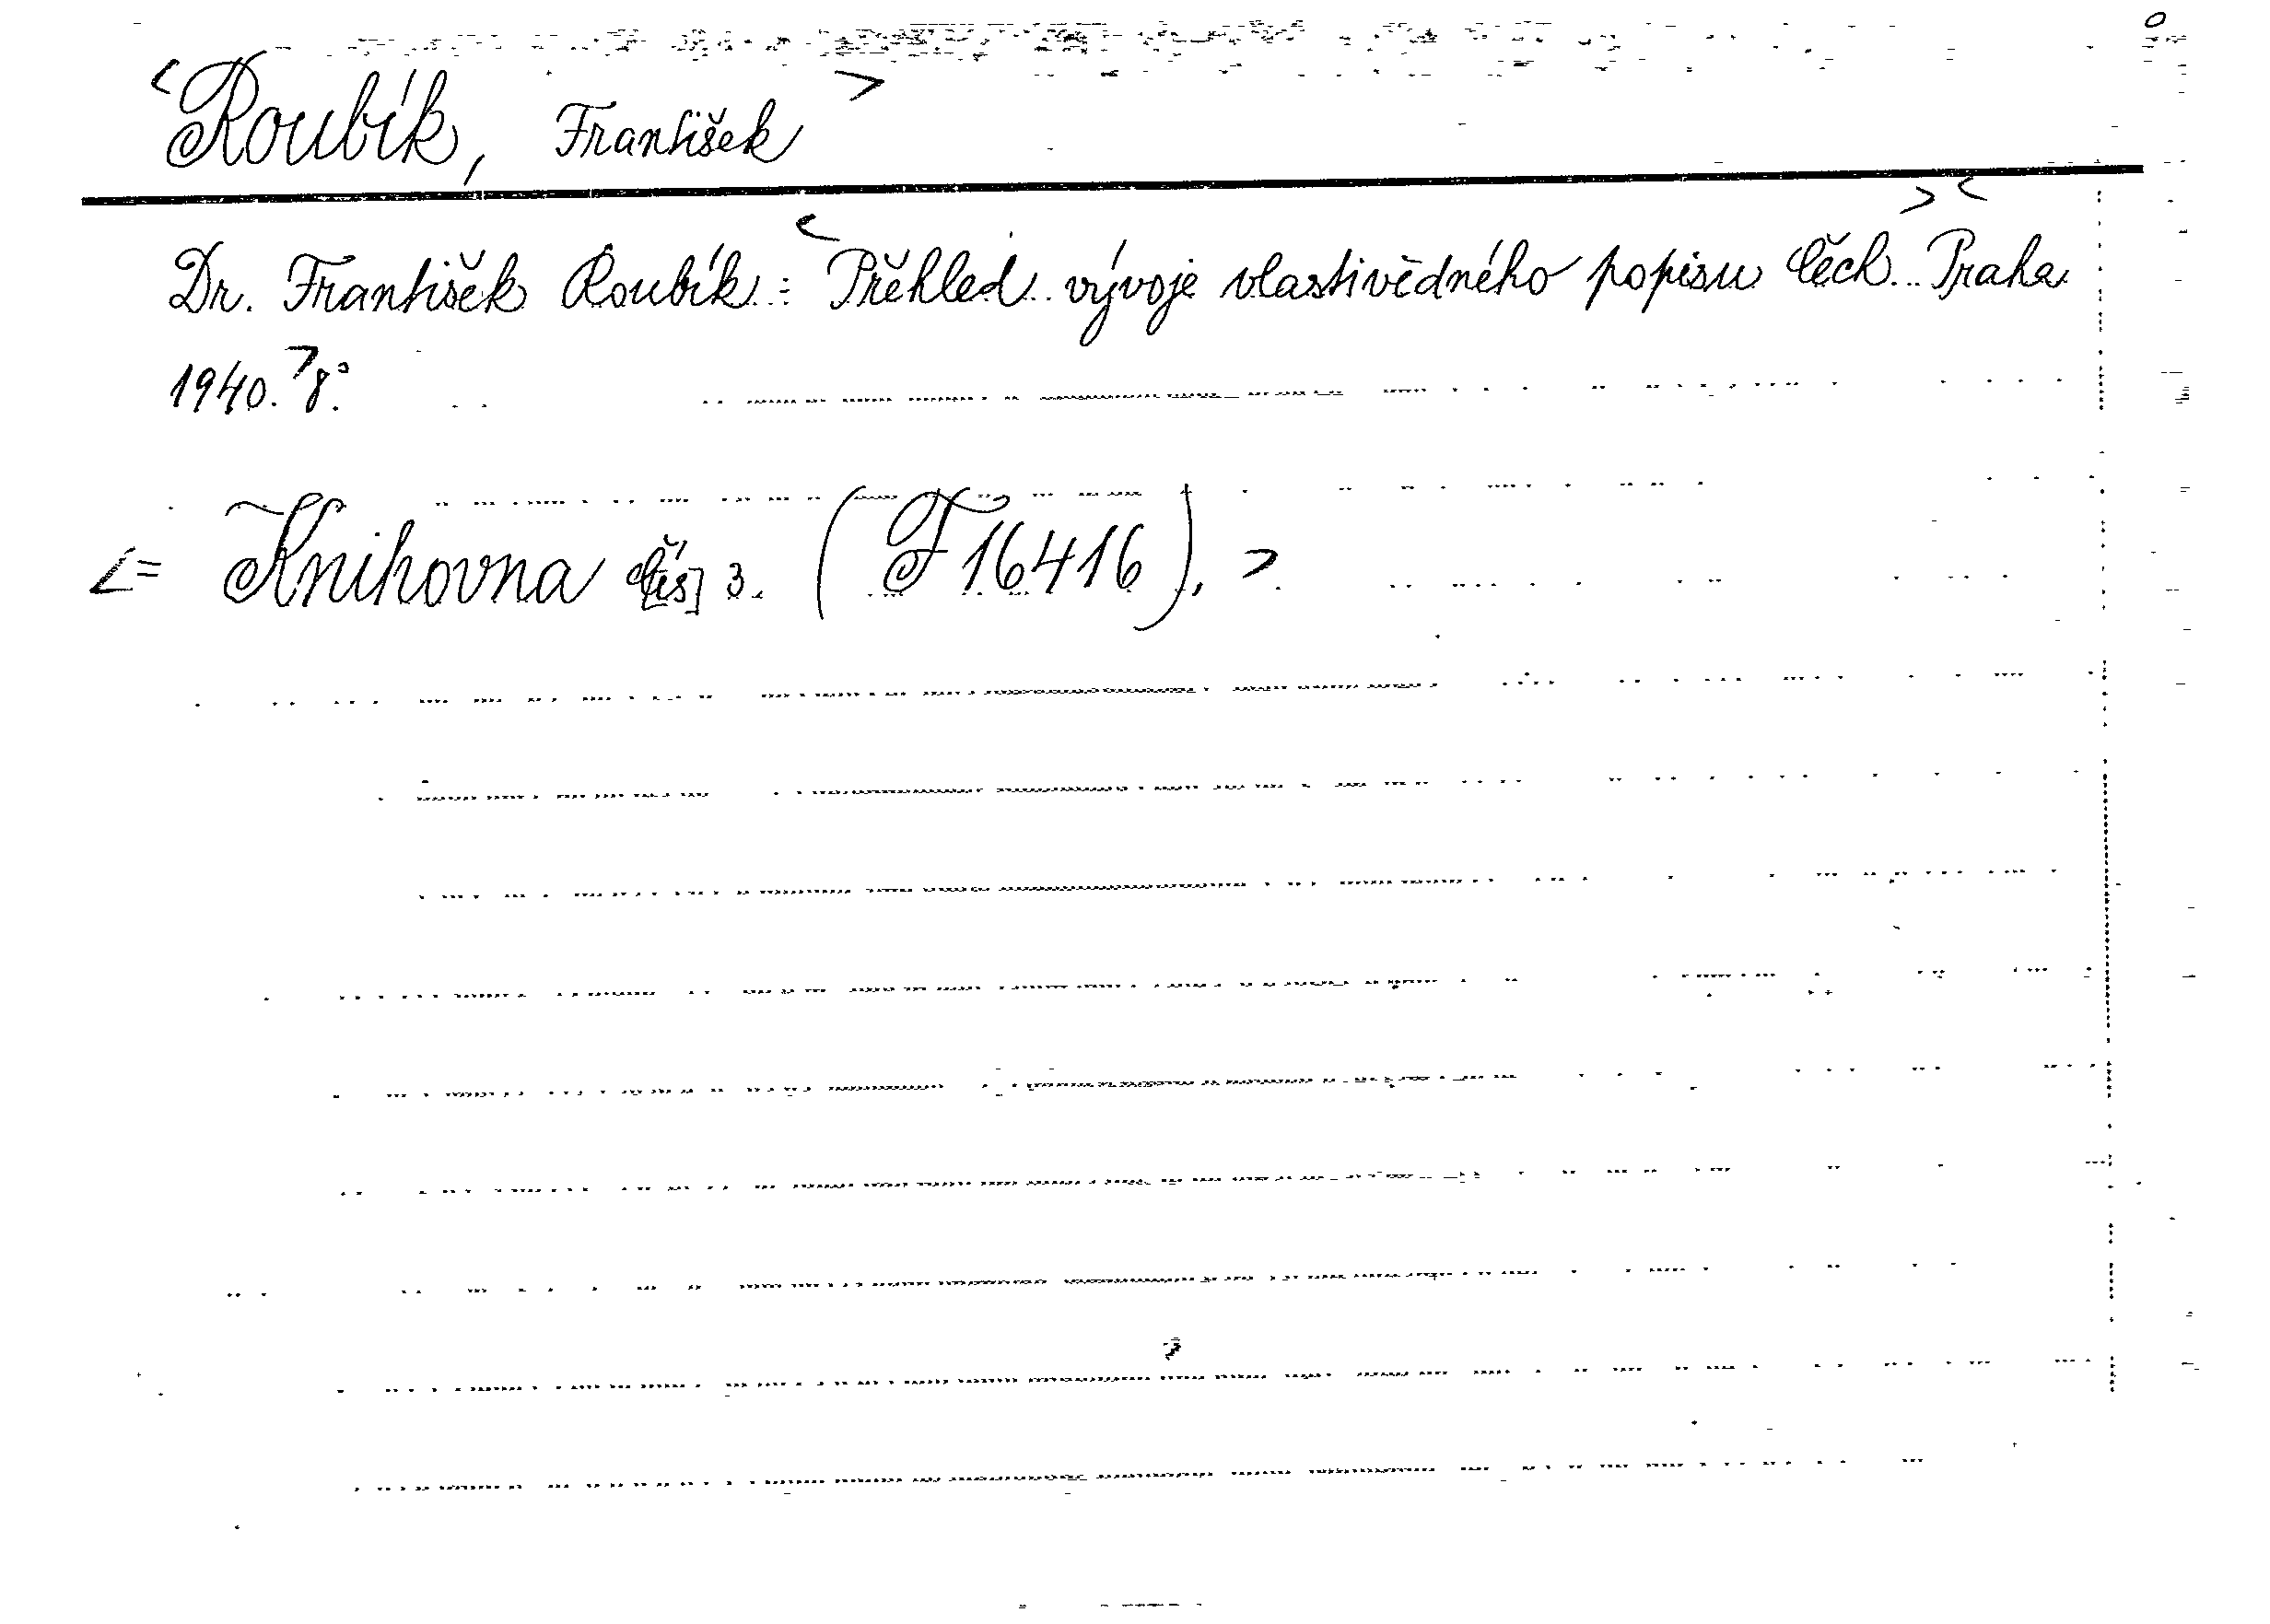 <Roubík, František>
Dr. František Roubík: <Přehled vývoje vlastivědného popisu Čech.> <Praha
1940.> 8°.
<= Knihovna čís] 3. (F 16416), >